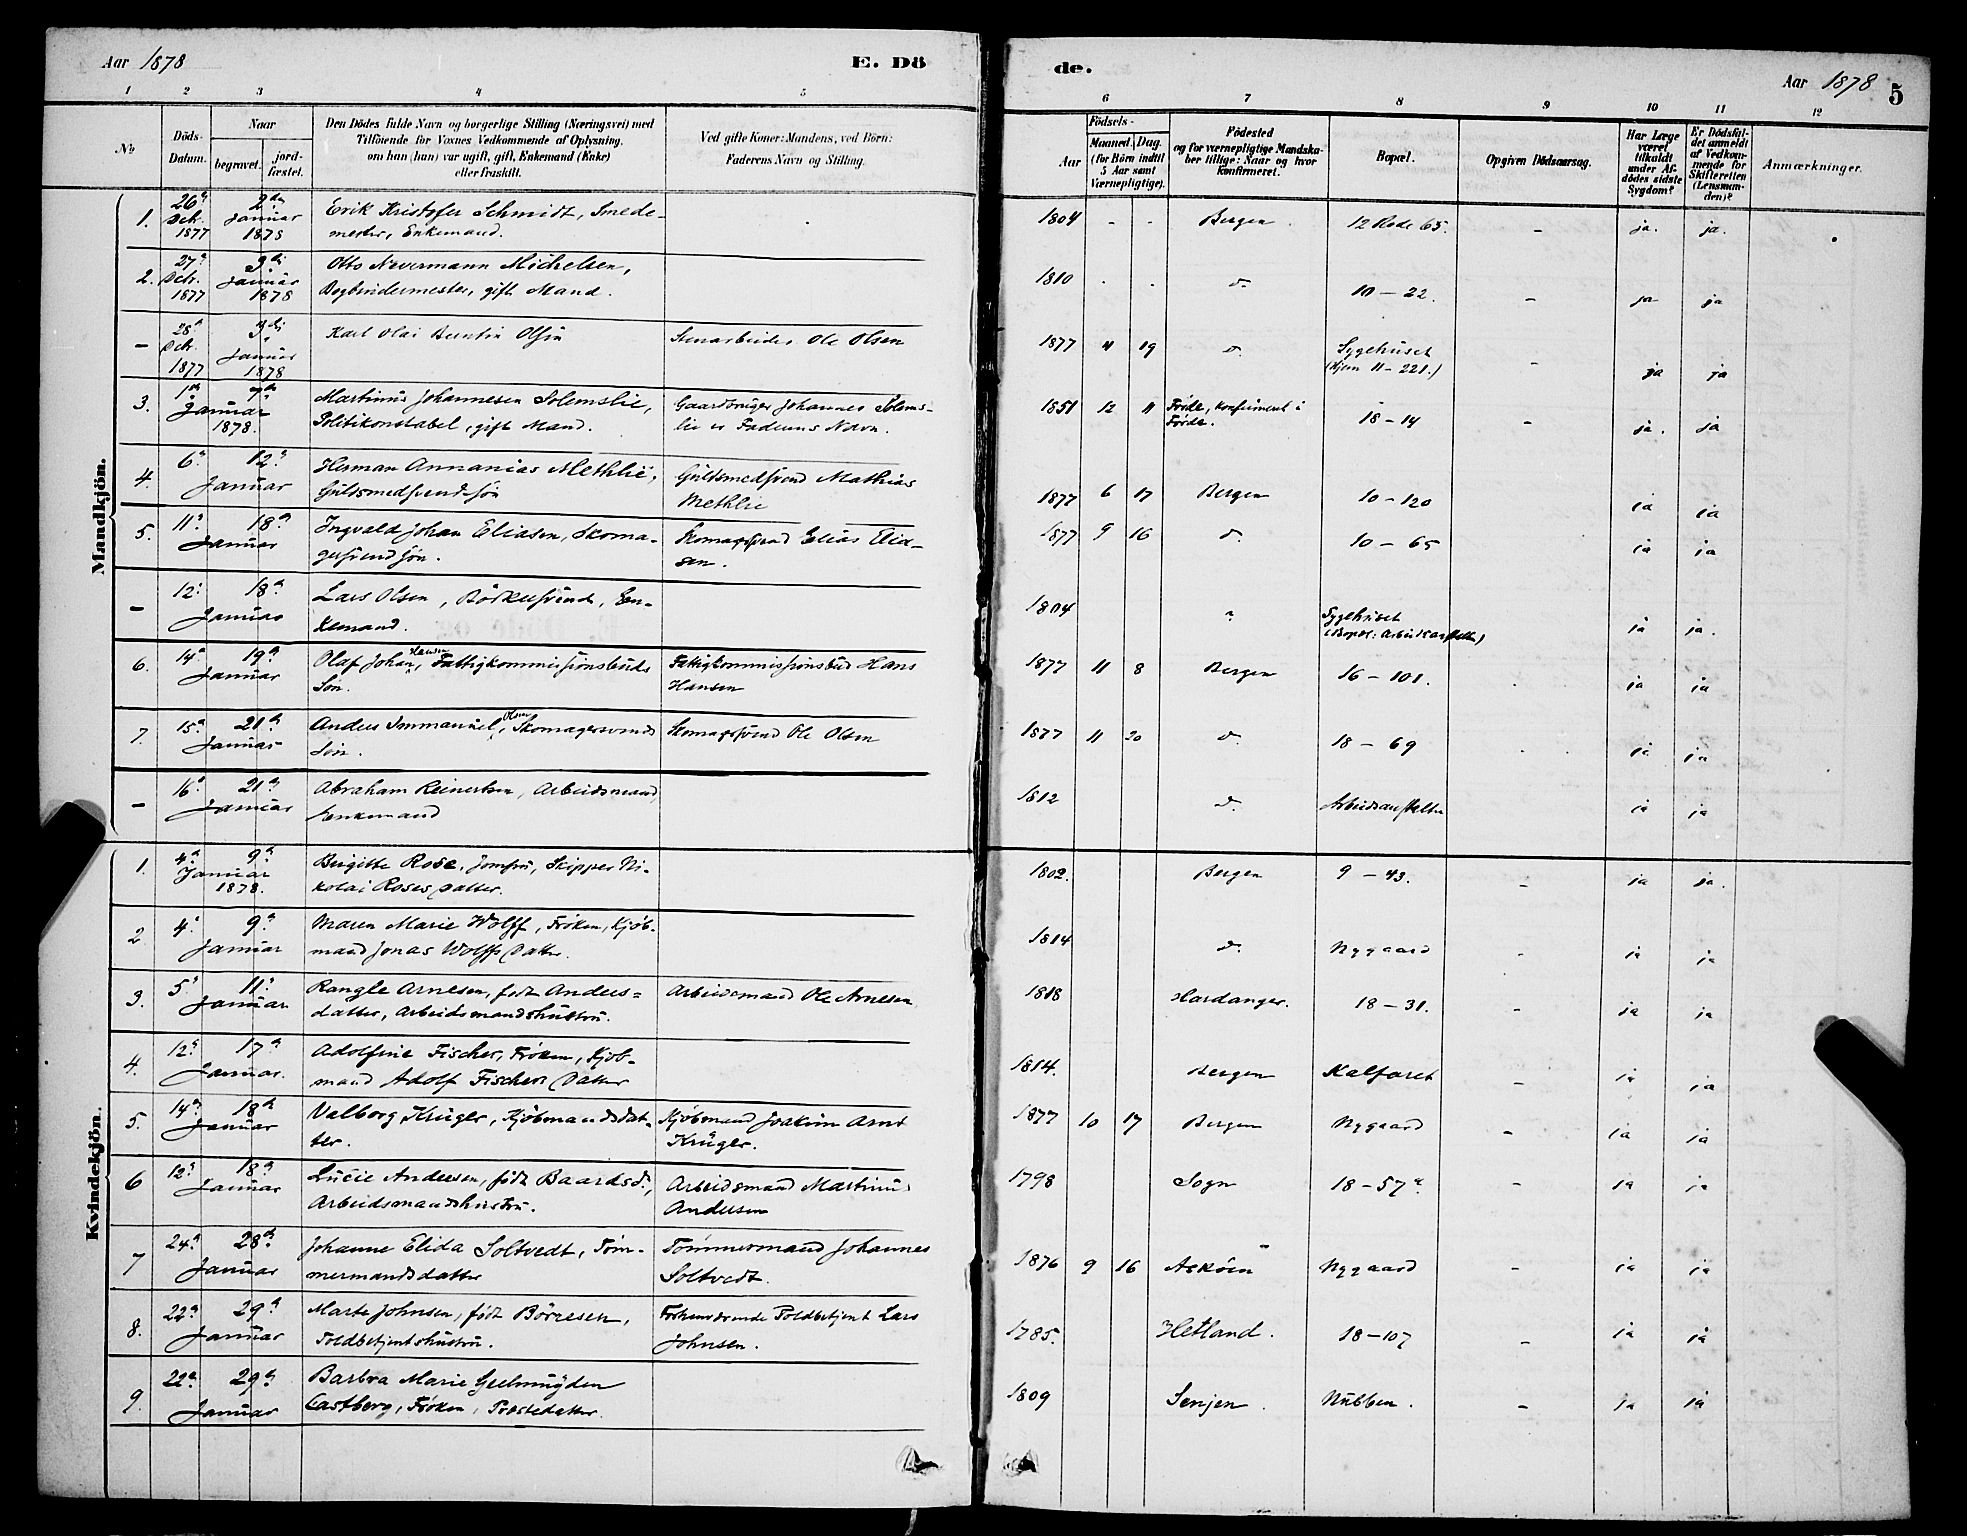 Aar 1878
E. Dö
de.
Aar 1878
5
1 2 3 4 5 6 7 8 9 10 11 12
No
Döds-
Datum.
Naar
begravet.
jord-
fæstet.
Den Dödes fulde Navn og borgerlige Stilling (Næringsvei) med
Tilföiende for Voxnes Vedkommende af Oplysning,
om han (hun) var ugift, gift, Enkemand (Enke)
eller fraskilt.
Ved gifte Koner: Mandens, ved Börn:
Faderens Navn og Stilling.
Födsels-
Aar
Maaned. Dag.
(for Börn indtil
5 Aar samt
Værnepligtige).
Födested
og for værnepligtige Mandska-
ber tillige: Naar og hvor
konfirmeret.
Bopæl.
Opgiven Dödsaarsag.
Har Læge
været
tilkaldt
under Af-
dödes sidste
Sygdom?
Er Dödsfal-
det anmeldt
af Vedkom-
mende for
Skifteretten
(Lensman-
den)?
Anmærkninger.
Mandkjön.
1. 26 Dcbr. 1877 2 Januar 1878 Erik Kristofer Schmidt, Smede-
mester, Enkemand. 1804 - - Bergen. 12 Rode 65. - ja. ja.
2. 27 Dcbr. 1877 3 Januar 1878 Otto Nevermann Michelsen,
Bogbindermester, gift Mand. 1810 d. 10 - 22. - ja ja
- 28 Dcbr. 1877 3 Januar 1878 Karl Olai Olsen Ole Olsen 1877 11 19 d. Sygehuset
(Hjem 11-221.) - ja ja
3. 1 Januar 1878. 7 Martinus Johannesen Solemslie,
Politikonstabel, gift Mand. Gaardbruger Johannes Solems-
lie er Faderens Navn. 1851 12 11 Förde, konfirmeret i
Förde. 18 - 14 - ja. ja
4. 6 12 Januar Herman Annanias Methlie,
Guldsmedsvendsøn Guldsmedsvend Mathias
Methlie 1877 6 17 Bergen 10 - 120 ja ja
5. 11 18 Januar Ingvald Johan Eliasen, Skoma-
gersvendsøn. Skomagersvend Elias Elia-
sen. 1877 9 16 d. 10 - 65 ja ja
- 12 18 Januar Lars Olsen, Bödkersvend, En-
kemand. 1804 Sygehuset
(Bopæl: Arbeidsanstalten) ja ja.
6. 14 19 Januar Olaf Johan Hansen, Fattigkommissionsbuds
Søn. Fattigkommissionsbud Hans
Hansen 1877 11 8 Bergen 16 - 101. ja ja
7. 15 21 Januar Anders Immanuel Olsen, Skomagersvends
Søn. Skomagersvend Ole Olsen 1877 11 20 d. 18 - 69 ja ja
- 16 21 Januar Abraham Reinertsen, Arbeidsmand,
Enkemand 1812 d. Arbeidsanstalten ja ja
Kvindekjön.
1. 4 9 Januar 1878. Birgitte Rose, Jomfru, Skipper Ni-
kolai Roses Datter. 1802. Bergen 9 - 43. - ja ja.
2 4 9 Januar Maren Marie Wolff, Frøken, Kjøb-
mand Jonas Wolffs Datter. 1814 d. Nygaard - ja ja
3. 5 11 Januar Rangle Arnesen, født Anders=
datter, Arbeidsmandshustru. Arbeidsmand Ole Arnesen 1818 Hardanger. 18 - 31. - ja ja
4. 12 17 Januar. Adolfine Fischer, Frøken, Kjøb-
mand Adolf Fischers Datter 1814. Bergen Kalfaret - ja ja
5. 14 18 Januar Valborg Krüger, Kjøbmandsdat-
ter. Kjøbmand Joakim Arnt
Krüger. 1877 10 17 Bergen Nygaard - ja ja
6 12 18 Januar Lucie Andersen, født Baardsd.,
Arbeidsmandshustru. Arbeidsmand Martinus
Andersen 1798 Sogn 18 - 57 a. - ja ja
7 24 28 Januar Johanne Elida Soltvedt, Tøm-
mermandsdatter Tømmermand Johannes
Soltvedt. 1876 9 16 Askøen Nygaard - ja ja
8. 22 29 Januar Marte Johnsen, født Børresen,
Toldbetjentshustru. Forhenværende Toldbetjent Lars
Johnsen. 1785. Hetland. 18 - 107 - ja ja
9. 22 29 Januar Barbra Marie Geelmuyden
Castberg, Frøken, Prostedatter. 1809 Senjen. Nubben. - ja ja